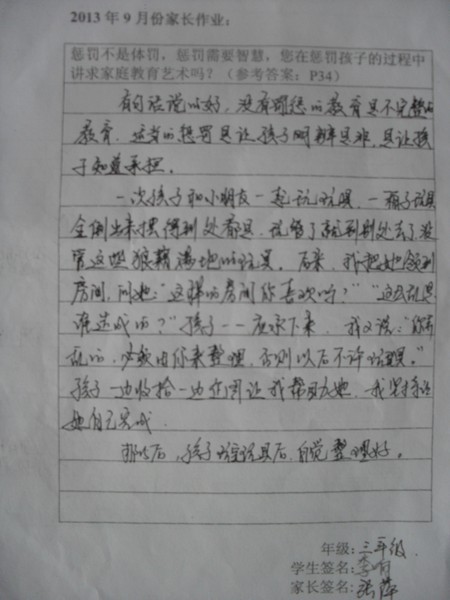 2013年9月份家长作业：
惩罚不是体罚，惩罚需要智慧，您在惩罚孩子的过程中
讲求家庭教育艺术吗？（参考答案：P34）
有句话说的好，没有惩罚的教育是不完整的
教育，这者的惩罚是让孩子明辨是非，是让孩
子知道承担。
一次孩子和小朋友一起玩玩具，一箱子玩具
全倒出来摆得到处都是，玩够了就到别处去了没
管这些狼藉满地的玩具。后来，我把她领到
房间，问她："这样的房间你喜欢吗？""这么乱是
谁造成的？"孩子一一应承下来，我又说："你弄
乱的，必须由你来整理，否则以后不许玩玩具。"
孩子一边收拾一边企图让我帮助她，我坚持让
她自己完成
那以后，孩子玩完玩具后，自觉整理好。
年级：三年级
学生签名：李
家长签名：张萍